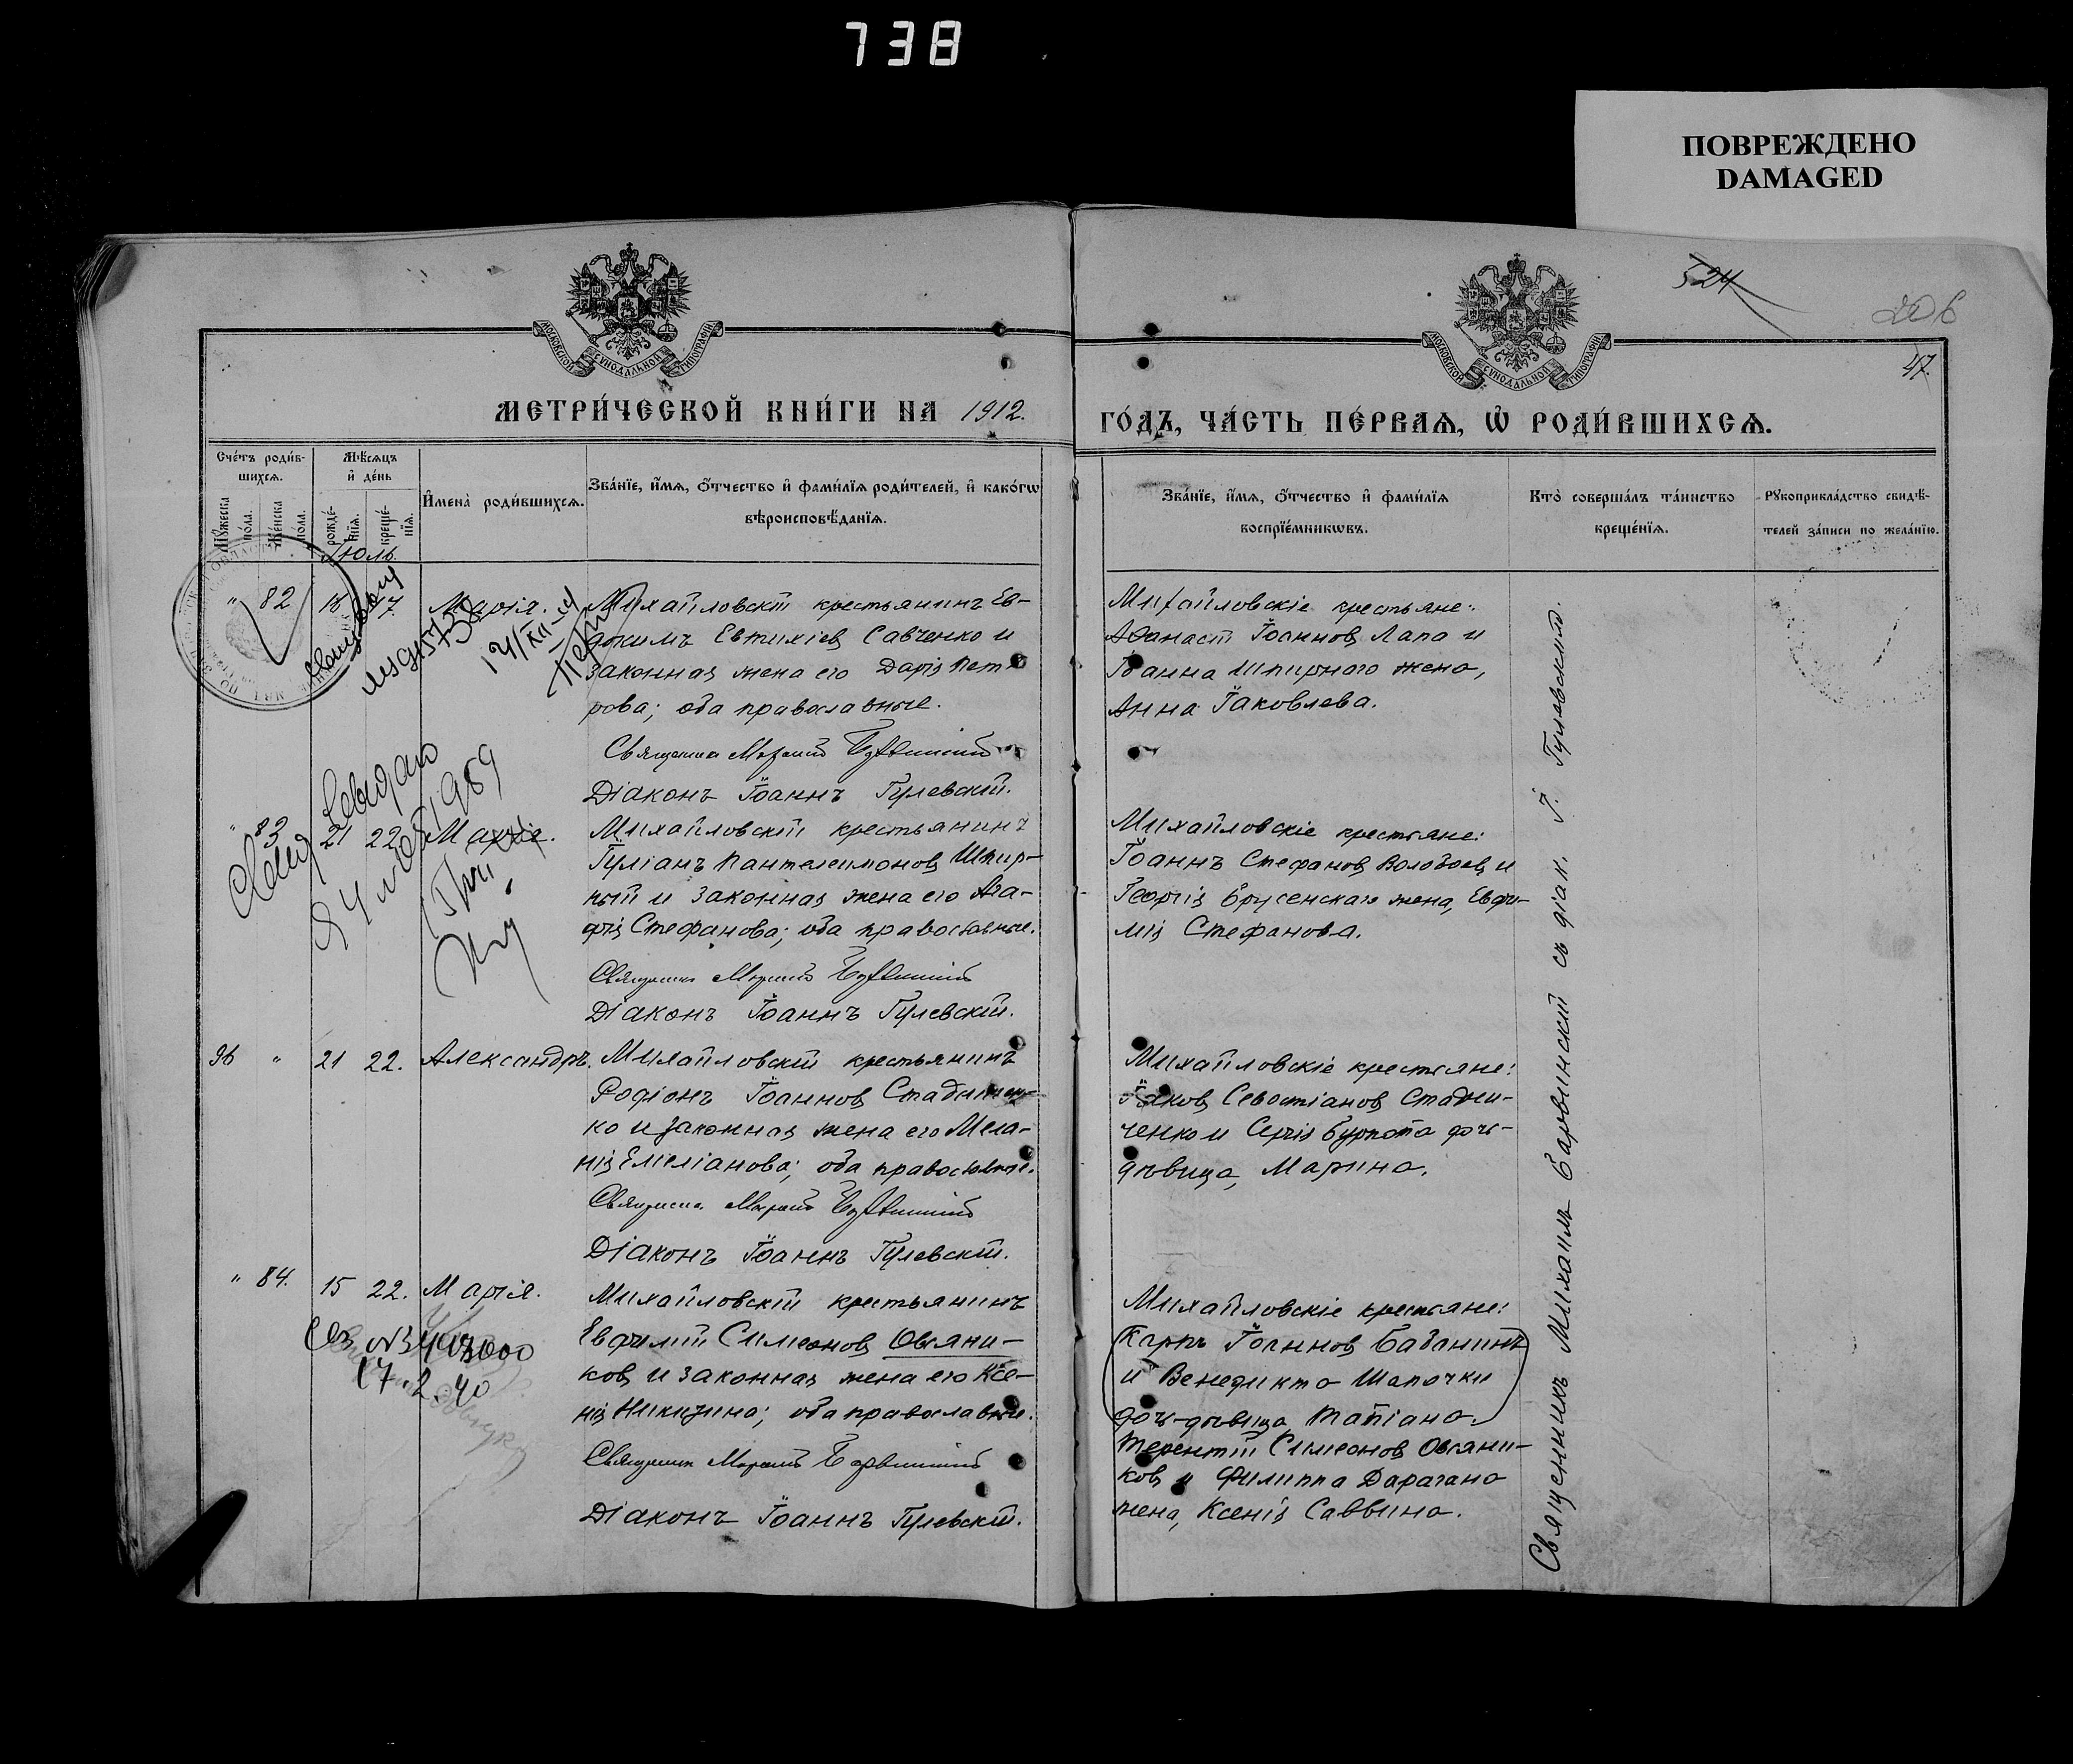 738
ПОВРЕЖДЕНО
DAMAGED
524
206
47.
МОСКОВСКОЙ СѴНОДАЛЬНОЙ ТИПОГРАФІИ
МОСКОВСКОЙ СѴНОДАЛЬНОЙ ТИПОГРАФІИ
МЕТРИ́ЧЕСКОЙ КНИ́ГИ НА 1912.
ГО́ДЪ, ЧА́СТЬ ПЕ́РВАѦ, Ѡ҆ РОДИ́ВШИХСѦ.
Сче́тъ роди́в-
шихсѧ.
Мꙋ́жеска по́ла.
Же́нска по́ла.
Мѣ́сѧцъ
и҆ де́нь
рожде́-
нїѧ.
креще́-
нїѧ.
И҆мена̀ роди́вшихсѧ.
Зва́нїе, и҆́мѧ, ѻ҆́тчество и҆ фами́лїѧ роди́телей, и҆ како́гѡ
вѣроисповѣ́данїѧ.
Зва́нїе, и҆́мѧ, ѻ҆́тчество и҆ фами́лїѧ
воспрїе́мникѡвъ.
Кто̀ соверша́лъ та́инство
креще́нїѧ.
Рꙋкоприкла́дство свидѣ́-
телей за́писи по жела́нїю.
Іюль.
" 82 16 17 Марія.
Михайловскій крестьянинъ Ев-
докимъ Евтихіев Савченко и
законная жена его Дарія Пет-
рова; оба православные.
Священник Михаилъ Барвинскій
Діаконъ Іоаннъ Гулевскій.
Михайловскіе крестьяне:
Аѳанасій Іоаннов Лапа и
Іоанна Шпирного жена,
Анна Іаковлева.
" 83 21 22 Марія.
1989
Михайловскій крестьянинъ
Іуліанъ Пантелеимонов Шпир-
ный и законная жена его Ага-
фія Стефанова; оба православные.
Священник Михаилъ Барвинскій
Діаконъ Іоаннъ Гулевскій.
Михайловскіе крестьяне:
Іоаннъ Стефанов Волобоев и
Георгія Брусенскаго жена, Евфи-
мія Стефанова.
96 " 21 22. Александръ.
Михайловскій крестьянинъ
Родіонъ Іоаннов Стадничен-
ко и законная жена его Мела-
нія Емеліанова; оба православные.
Священник Михаилъ Барвинскій
Діаконъ Іоаннъ Гулевскій.
Михайловскіе крестьяне:
Іаков Севастіанов Стадни-
ченко и Сергія Бурпота дочь-
дѣвица, Марина.
" 84. 15 22. Марія.
17.2.40
Михайловскій крестьянинъ
Евфимій Симеонов Овсяни-
ков и законная жена его Ксе-
нія Никитина; оба православные.
Священник Михаилъ Барвинскій
Діаконъ Іоаннъ Гулевскій.
Михайловскіе крестьяне:
Карпъ Іоаннов Бабанинъ
и Венедикта Шапочки
дочь-дѣвица Татіана.
Терентій Симеонов Овсяни-
ков и Филиппа Дарагана
жена, Ксенія Саввина.
Священникъ Михаилъ Барвинскій съ діак. І. Гулевскимъ.